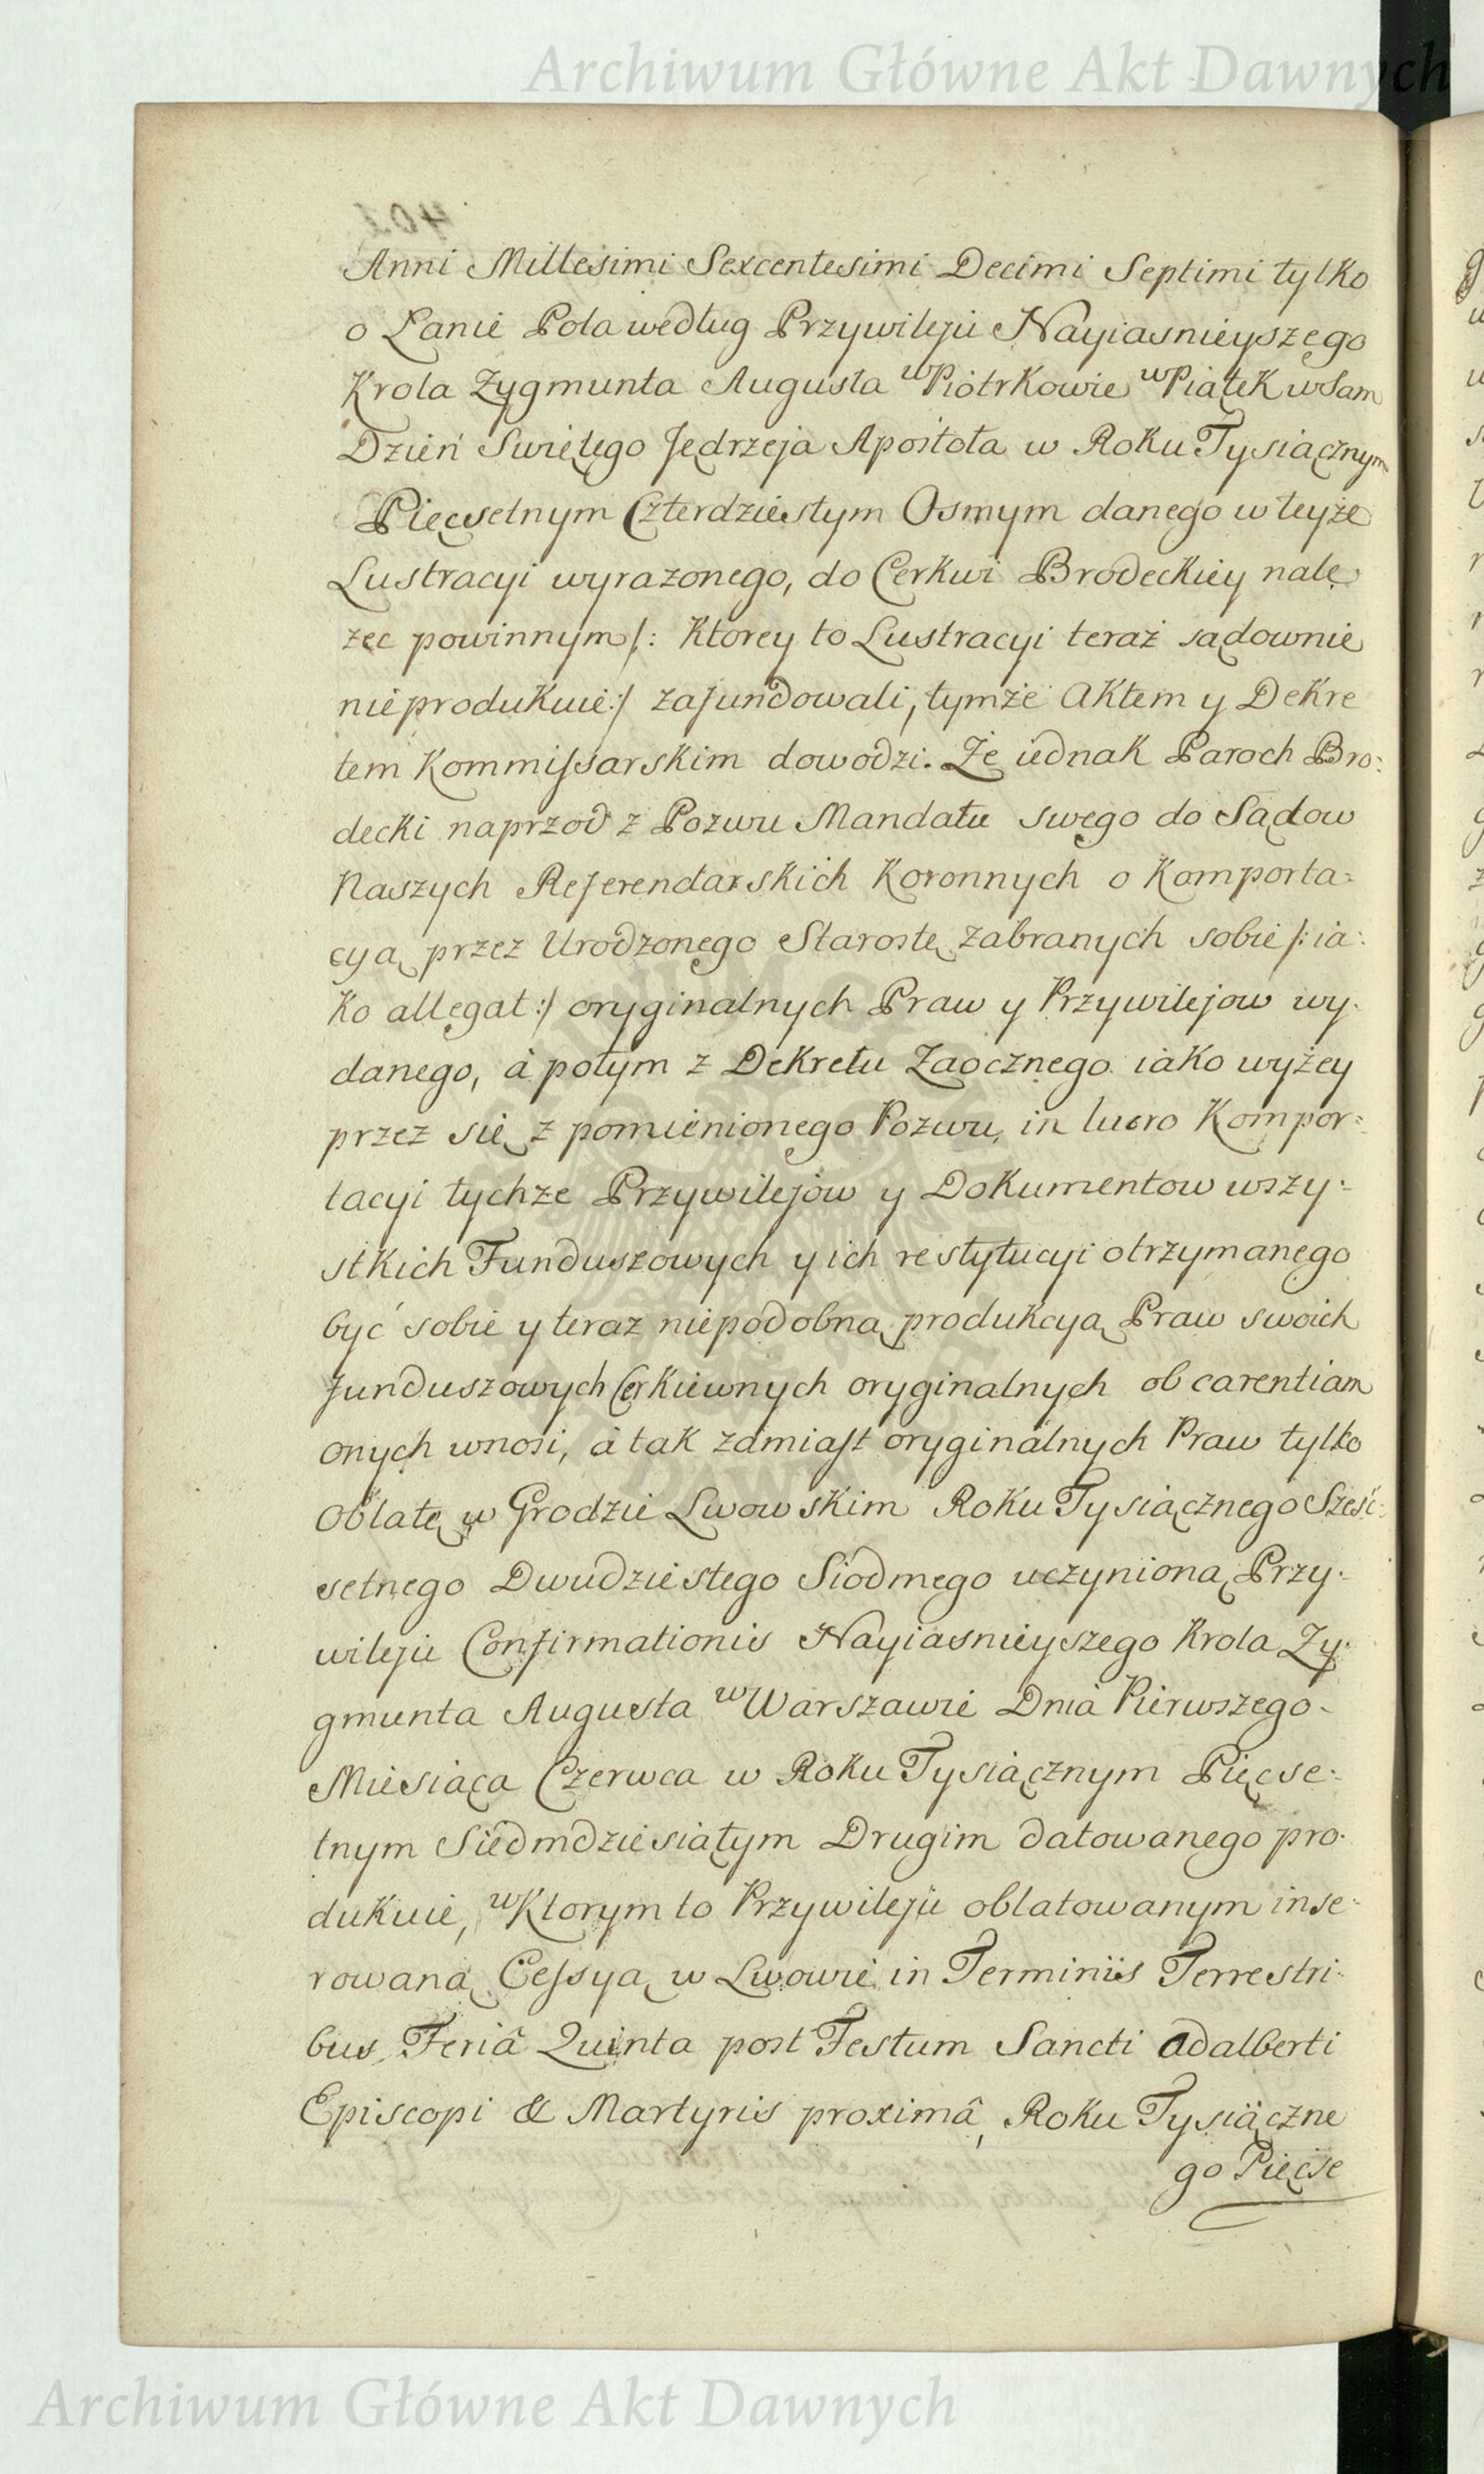 Archiwum Główne Akt Dawnych
401
Anni Millesimi Sexcentesimi Decimi Septimi tylko
o Łanie Pola według Przywileju Nayiasnieyszego
Krola Zygmunta Augusta w Piotrkowie w Piątek w Sam
Dzień Swiętego Jędrzeja Apostoła w Roku Tysiącznym
Pięcsetnym Czterdziestym Osmym danego w teyże
Lustracyi wyrazonego, do Cerkwi Brodeckiey nale
żec powinnym /: Ktorey to Lustracyi teraż sądownie
nieprodukuie :/ zafundowali, tymże Aktem y Dekre
tem Kommissarskim dowodzi. Że iednak Paroch Bro:
decki naprzod z Pozwu Mandatu swego do Sądow
Naszych Referendarskich Koronnych o Komporta:
cyą przez Urodzonego Starostę zabranych sobie /: ia:
ko allegat :/ oryginalnych Praw y Przywilejow wy:
danego, à potym z Dekretu Zaocznego iako wyżey
przez się z pomienionego Pozwu in lucro Kompor:
tacyi tychże Przywilejow y Dokumentow wszy:
stkich Funduszowych y ich restytucyi otrzymanego
być sobie y teraz niepodobną produkcyą Praw swoich
funduszowych Cerkiewnych oryginalnych ob carentiam
onych wnosi, à tak zamiast oryginalnych Praw tylko
Oblatę w Grodzie Lwowskim Roku Tysiącznego Sześć:
setnego Dwudziestego Siodmego uczynioną Przy:
wileju Confirmationis Nayiasnieyszego Krola Zy:
gmunta Augusta w Warszawie Dnia Pierwszego
Miesiąca Czerwca w Roku Tysiącznym Pięcse:
tnym Siedmdziesiątym Drugim datowanego pro:
dukuie, w Ktorym to Przywileju oblatowanym inse:
rowaną Cessyą w Lwowie in Terminis Terrestri:
bus Feriâ Quinta post Festum Sancti Adalberti
Episcopi & Martyris proximâ, Roku Tysiączne
go Pięcse
Archiwum Główne Akt Dawnych